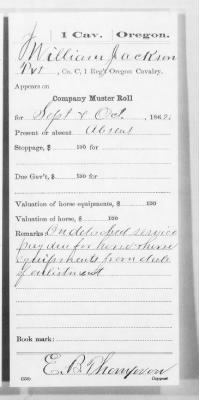 J | 1 Cav. | Oregon.
William Jackson
Pvt, Co. C, 1 Reg't Oregon Cavalry.
Appears on
Company Muster Roll
for Sept & Oct, 1862.
Present or absent Absent
Stoppage, $ 100 for
Due Gov't, $ 100 for
Valuation of horse equipments, $ 100
Valuation of horse, $ 100
Remarks: On detached service
pay due for horse & horse
equipments from date
of enlistment
Book mark:
E. B. Thompson
(358) Copyist.